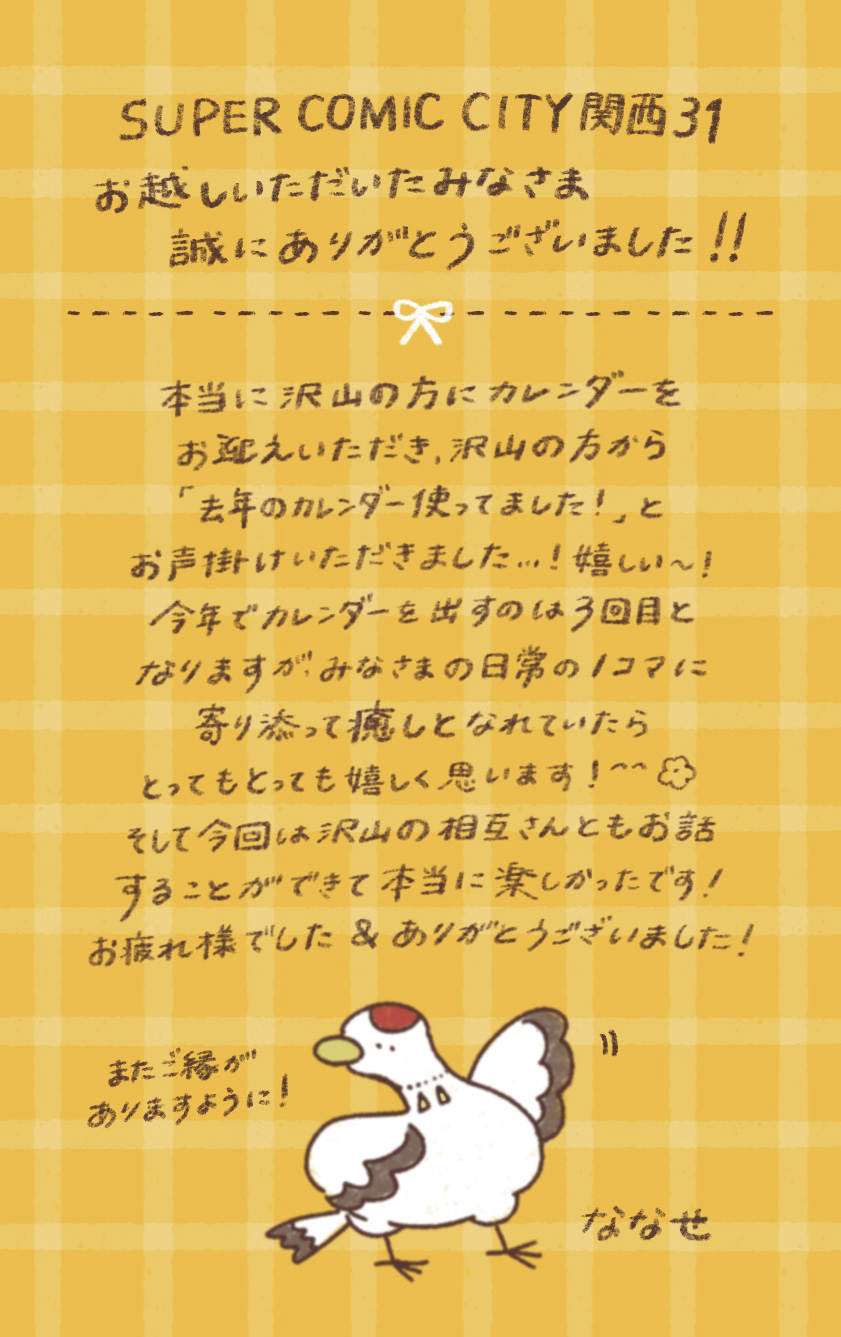 SUPER COMIC CITY関西31
お越しいただいたみなさま
誠にありがとうございました!!
本当に沢山の方にカレンダーを
お迎えいただき、沢山の方から
「去年のカレンダー使ってました!」と
お声掛けいただきました…!嬉しい〜!
今年でカレンダーを出すのは3回目と
なりますが、みなさまの日常の1コマに
寄り添って癒しとなれていたら
とってもとっても嬉しく思います!^^
そして今回は沢山の相互さんともお話
することができて本当に楽しかったです!
お疲れ様でした & ありがとうございました!
またご縁が
ありますように!
ななせ